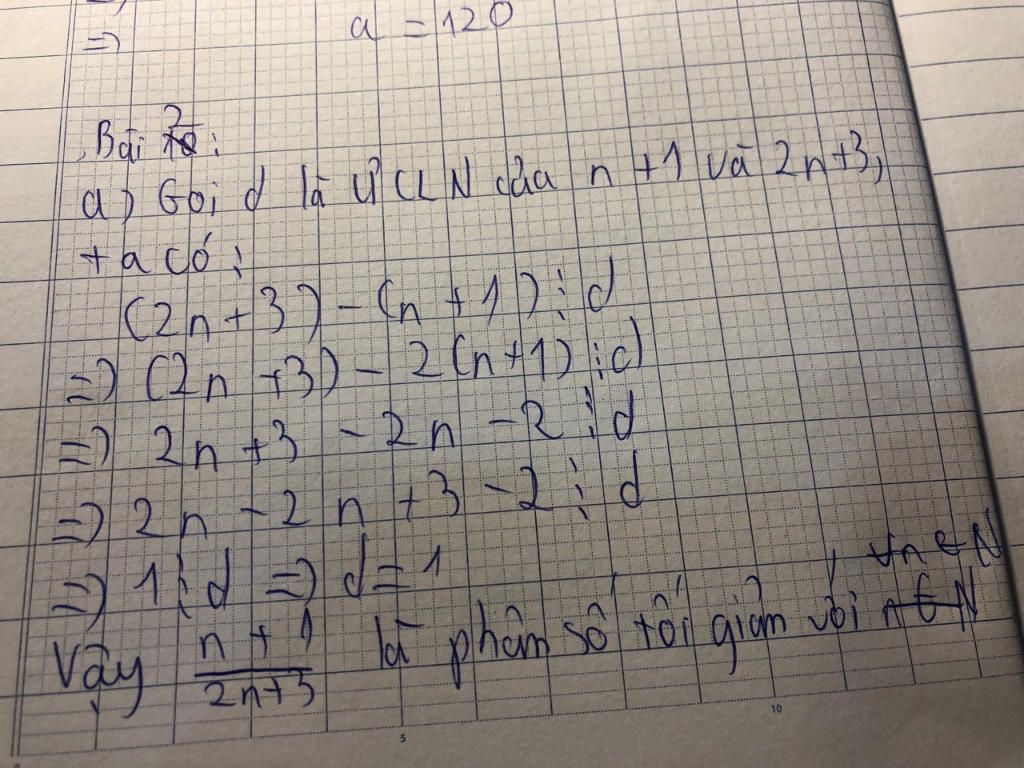 => a = 120
Bài 2:
a) Gọi d là ƯCLN của n + 1 và 2n+3,
ta có:
(2n + 3) - (n + 1) ⋮ d
=> (2n + 3) - 2(n+1) ⋮ d
=> 2n + 3 - 2n - 2 ⋮ d
=> 2n - 2n + 3 - 2 ⋮ d
=> 1 ⋮ d => d = 1
∀n ∈ N
Vậy \frac{n + 1}{2n+3} là phân số tối giản với n ∈ N
5
10